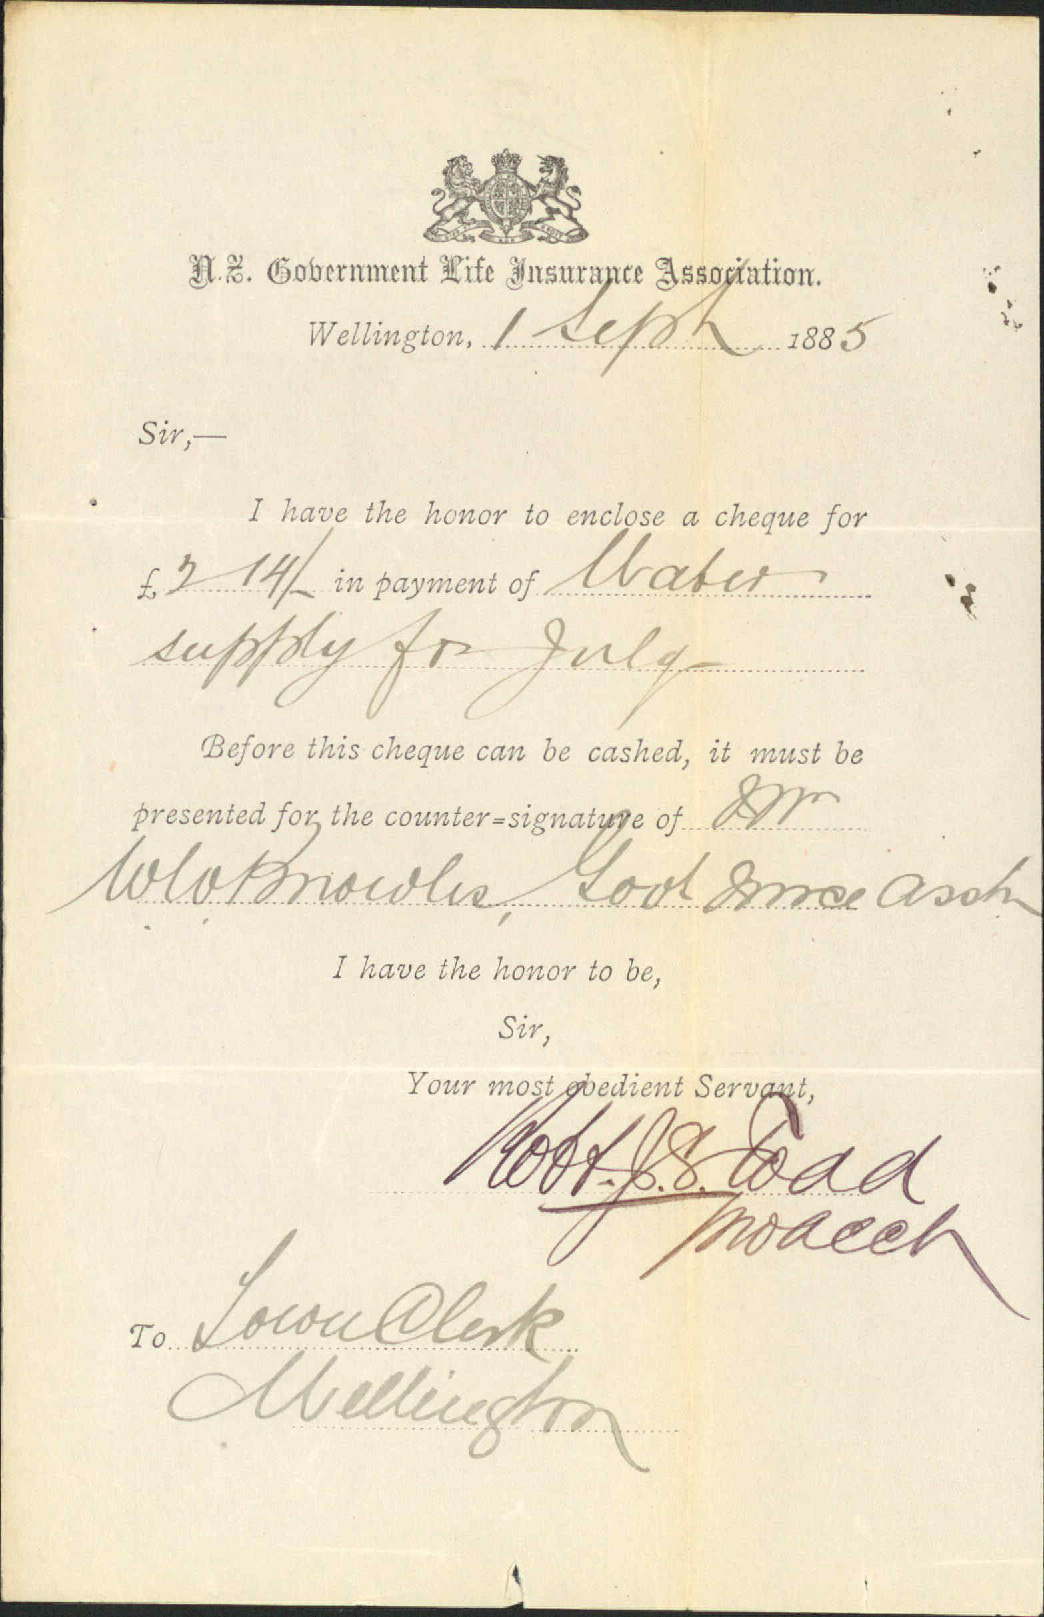 N.Z. Government Life Insurance Association.
Wellington, 1 Sept 1885
Sir,—
I have the honor to enclose a cheque for
£2 14/- in payment of Water
supply for July
Before this cheque can be cashed, it must be
presented for the counter=signature of Mr
Knowles, Govt Insce Asscn
I have the honor to be,
Sir,
Your most obedient Servant,
Robt. J. S. Todd
To Town Clerk
Wellington